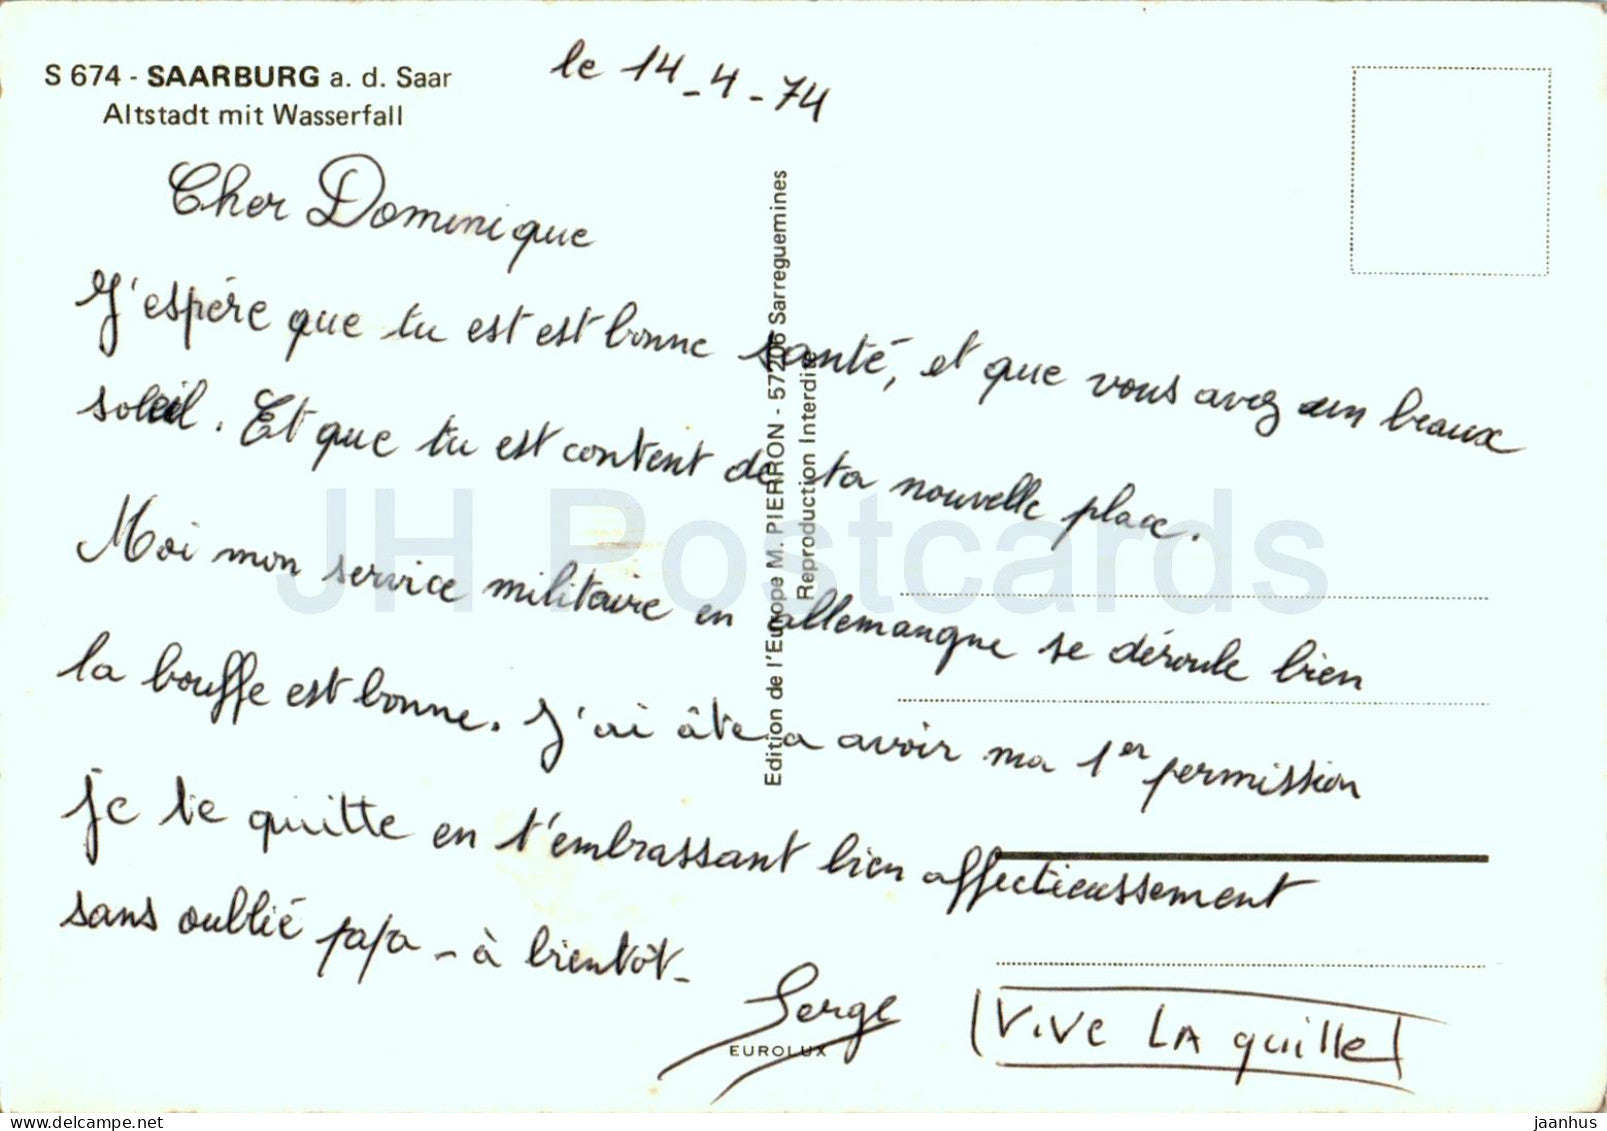 S 674 - SAARBURG a. d. Saar
Altstadt mit Wasserfall
le 14-4-74
Cher Dominique
J'espère que tu est est bonne santé, et que vous avez un beaux
soleil. Et que tu est content de ta nouvelle place.
Moi mon service militaire en allemangne se déroule bien
la bouffe est bonne. J'ai âte a avoir ma 1er permission
je te quitte en t'embrassant bien affectieussement
sans oublié papa - à bientôt-
Serge
VIVE LA quille
Edition de l'Europe M. PIERRON - 57206 Sarreguemines
Reproduction Interdite
EUROLUX
JH Postcards
jaanhus